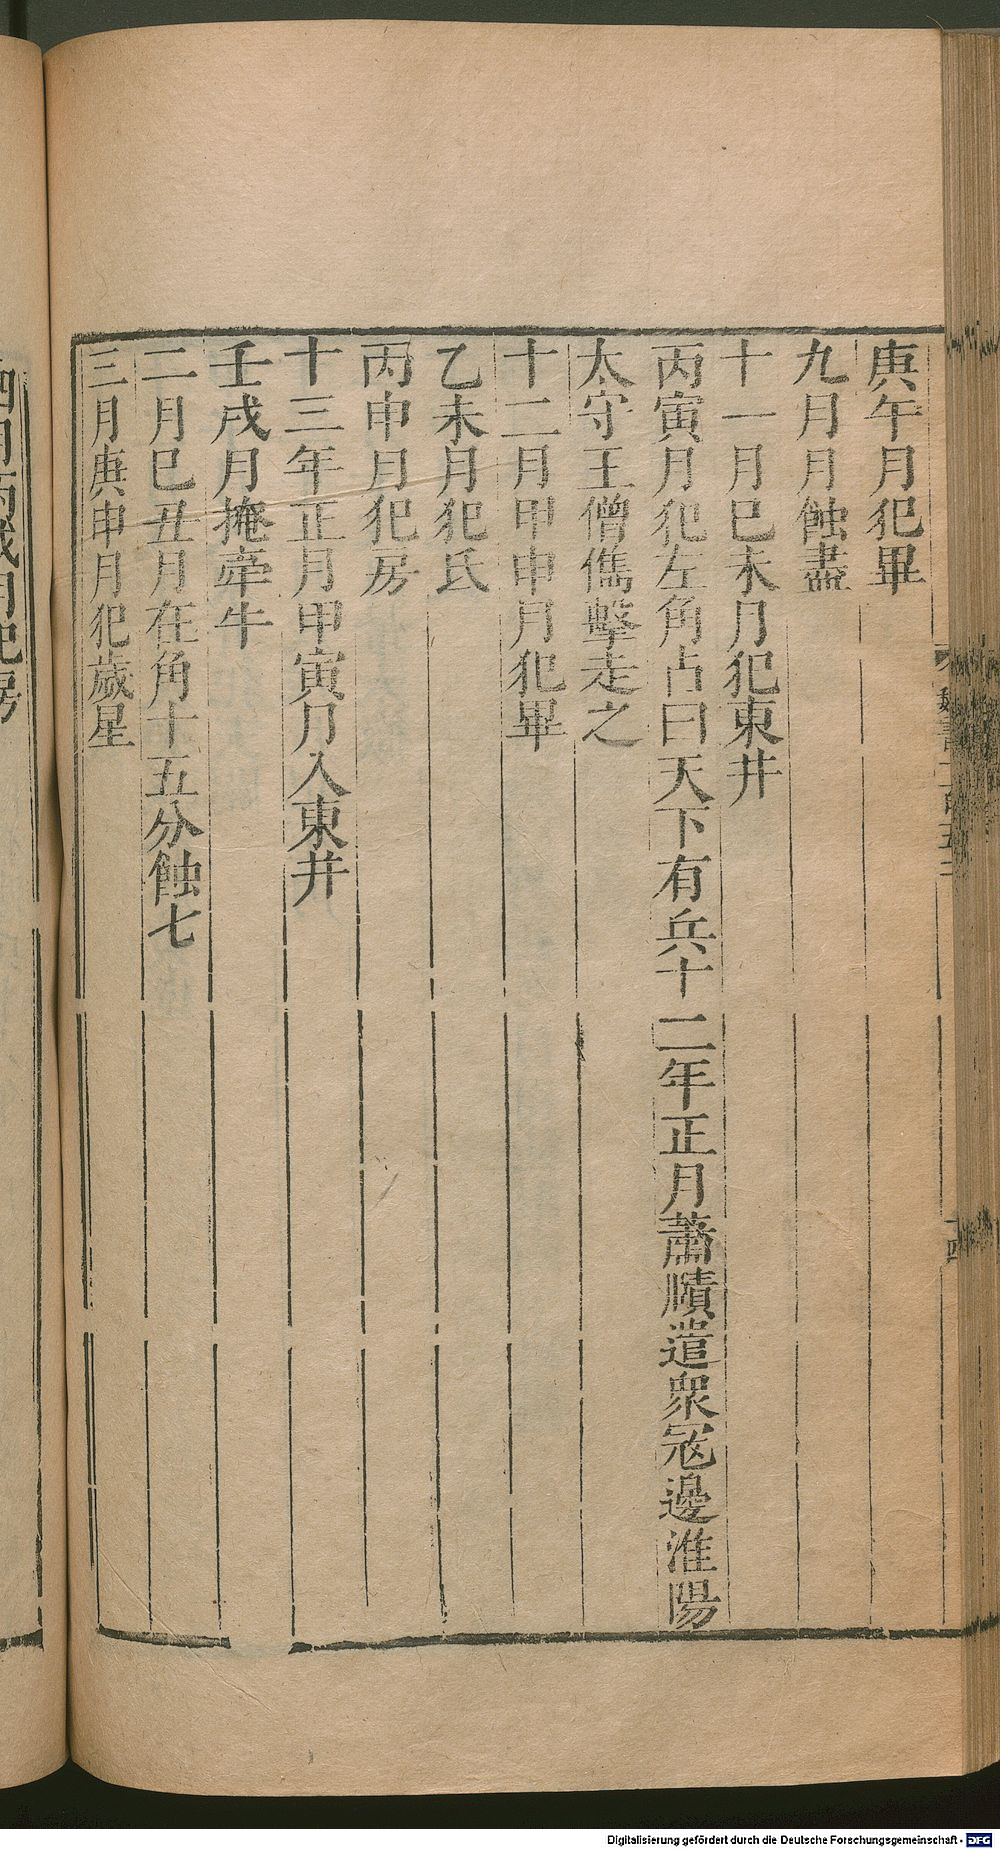 庚午月犯畢
九月月蝕盡
十一月巳未月犯東井
丙寅月犯左角占曰天下有兵十二年正月蕭賾遣衆宼邊淮陽
太守王僧儁擊走之
十二月甲申月犯畢
乙未月犯氐
丙申月犯房
十三年正月甲寅月入東井
壬戌月掩牽牛
二月巳丑月在角十五分蝕七
三月庚申月犯歲星
Digitalisierung gefördert durch die Deutsche Forschungsgemeinschaft - DFG